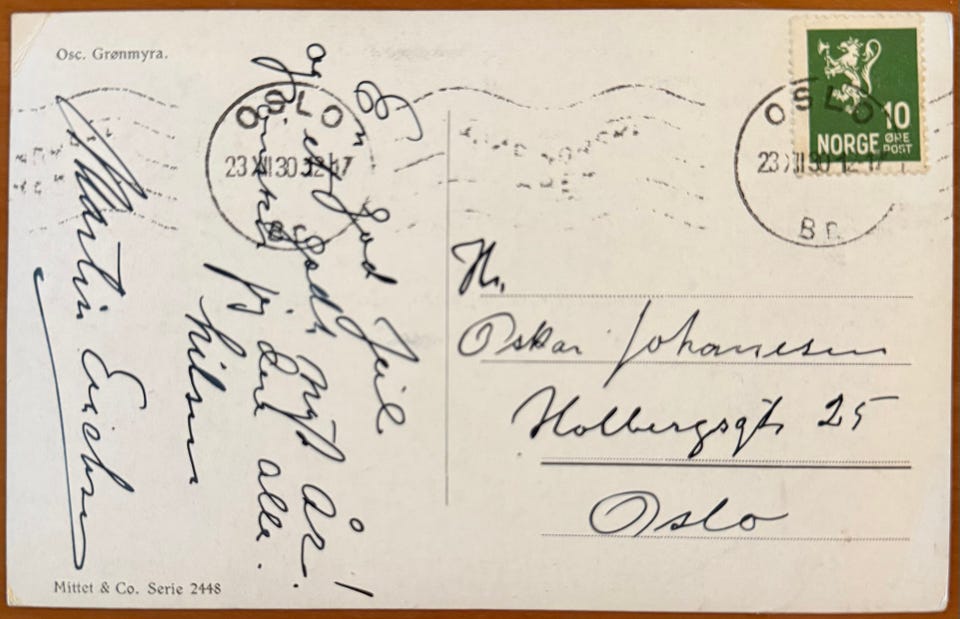 Osc. Grønmyra.
En god Jul
og et godt nytt År!
ønsker jeg dere alle.
hilsen
Martin Erichsen
Mittet & Co. Serie 2448
OSLO
23 XII 30 12-17
Br.
OSLO
23 XII 30 12-17
Br.
10
NORGE ØRE
POST
Hr.
Oskar Johanesen
Holbergsgt. 25
Oslo